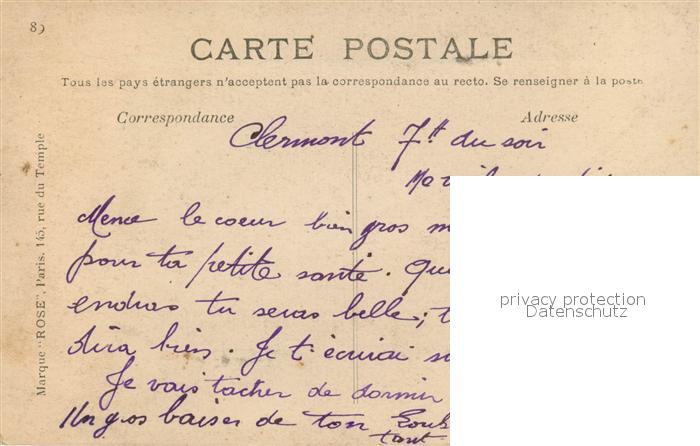 89
CARTE POSTALE
Tous les pays étrangers n'acceptent pas la correspondance au recto. Se renseigner à la poste
Correspondance Adresse
Clermont 7h du soir
le coeur bien gros
pour ta petite santé. Qu
endras tu seras belle; t
dira bien. Je t'écrirai
Je vais tacher de dormir
Un gros baiser de ton
tant
Marque "ROSE", Paris. 145, rue du Temple
privacy protection
Datenschutz